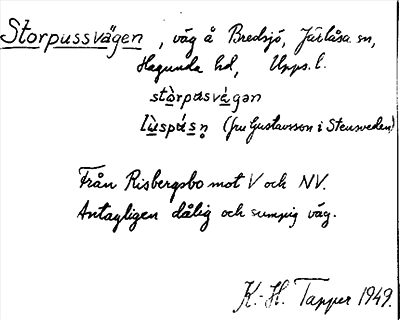 Storpussvägen, väg å Bredsjö, Järlåsa sn,
Hagunda hd, Upps. l.
stòrpusvä́gən
lùspúsn̥ (fru Gustavsson i Stensveden)
Från Risbergsbo mot V och NV.
Antagligen dålig och sumpig väg.
K.-H. Tapper 1949.